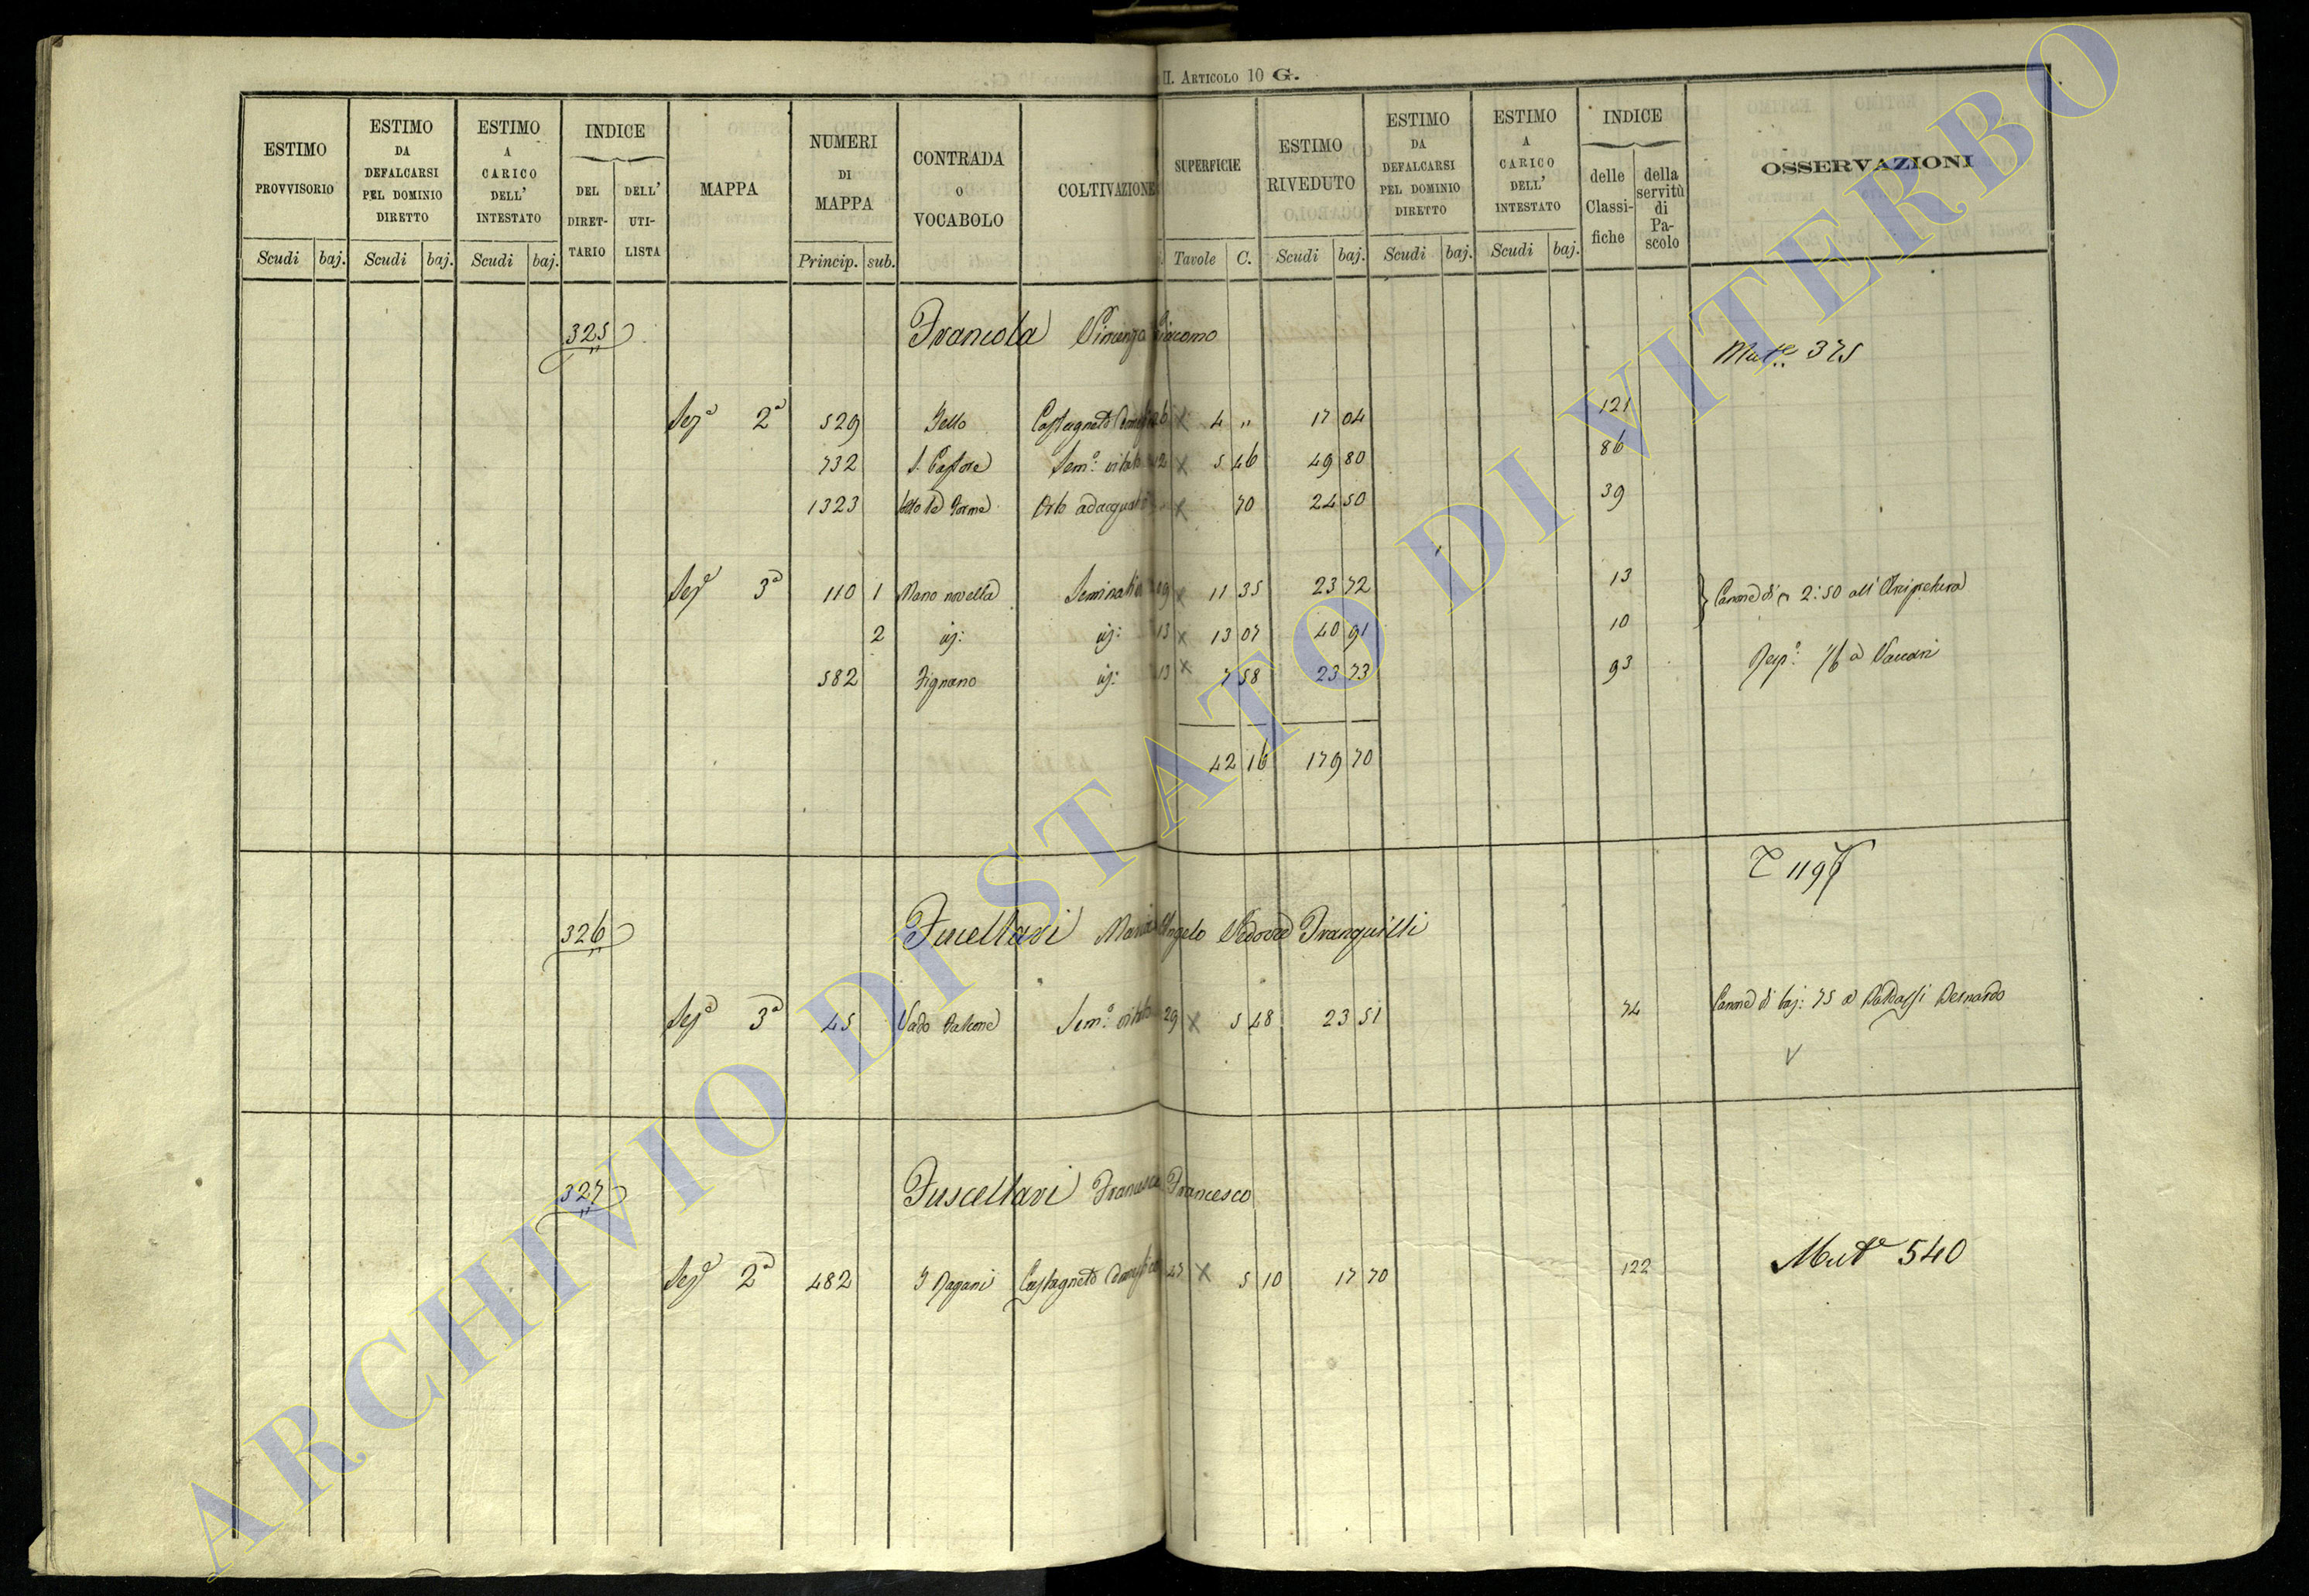 II. Articolo 10 G.
ESTIMO PROVVISORIO
ESTIMO DA DEFALCARSI PEL DOMINIO DIRETTO
ESTIMO A CARICO DELL' INTESTATO
INDICE
DEL DIRET-TARIO
DELL' UTI-LISTA
MAPPA
NUMERI DI MAPPA
CONTRADA O VOCABOLO
COLTIVAZIONE
SUPERFICIE
ESTIMO RIVEDUTO
ESTIMO DA DEFALCARSI PEL DOMINIO DIRETTO
ESTIMO A CARICO DELL' INTESTATO
INDICE
delle Classi-fiche
della servitù di Pa-scolo
OSSERVAZIONI
Scudi baj. Scudi baj. Scudi baj. Princip. sub. Tavole C. Scudi baj. Scudi baj. Scudi baj.
325 Francola Vincenzo Giacomo
Mut.e 375
Sez.e 2a 529 Castagneto 4 " 17 04 121
732 S. Pastore Sem.o vitato x 5 46 49 80 86
1323 Orto adacquat x 70 24 50 39
Sez.e 3a 110 1 Mano novella Seminativo x 11 35 23 72 13 Canone di 2:50 all'
2 x 13 07 40 91 10
582 Fignano x 7 58 23 73 93
42 16 179 70
326 Fucellari Maria Angelo Vedova Tranquilli
Sez.e 3a 45 Vado Sem.o vitato 29 x 5 48 23 51 74 Canone di baj: 75 a Bernardo
327 Fuscellari Francesco Francesco
Sez.e 2a 482 Castagneto 47 x 5 10 17 70 122 Mut.e 540
ARCHIVIO DI STATO DI VITERBO